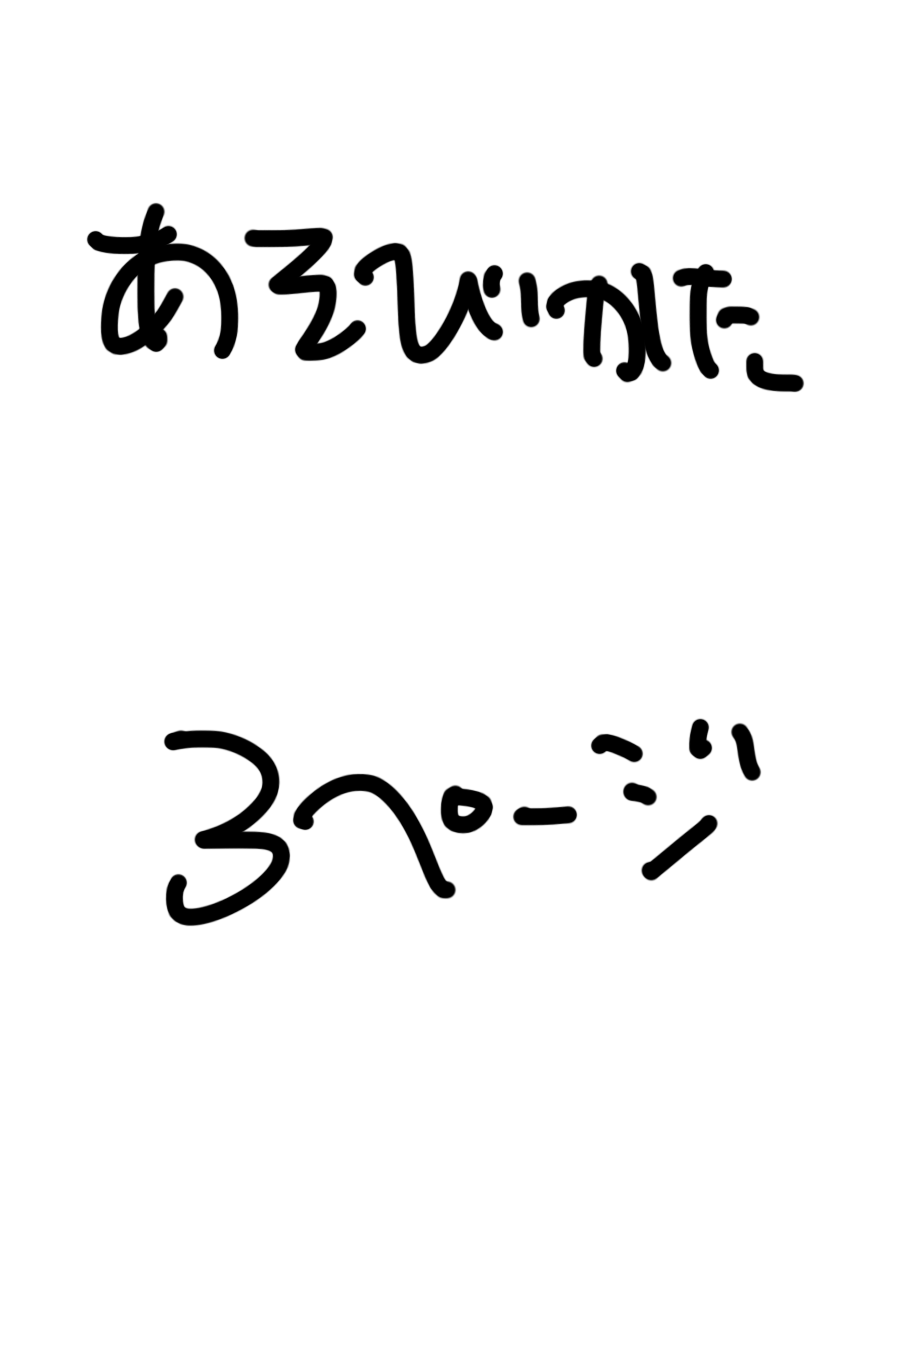 あそびかた
3ページ